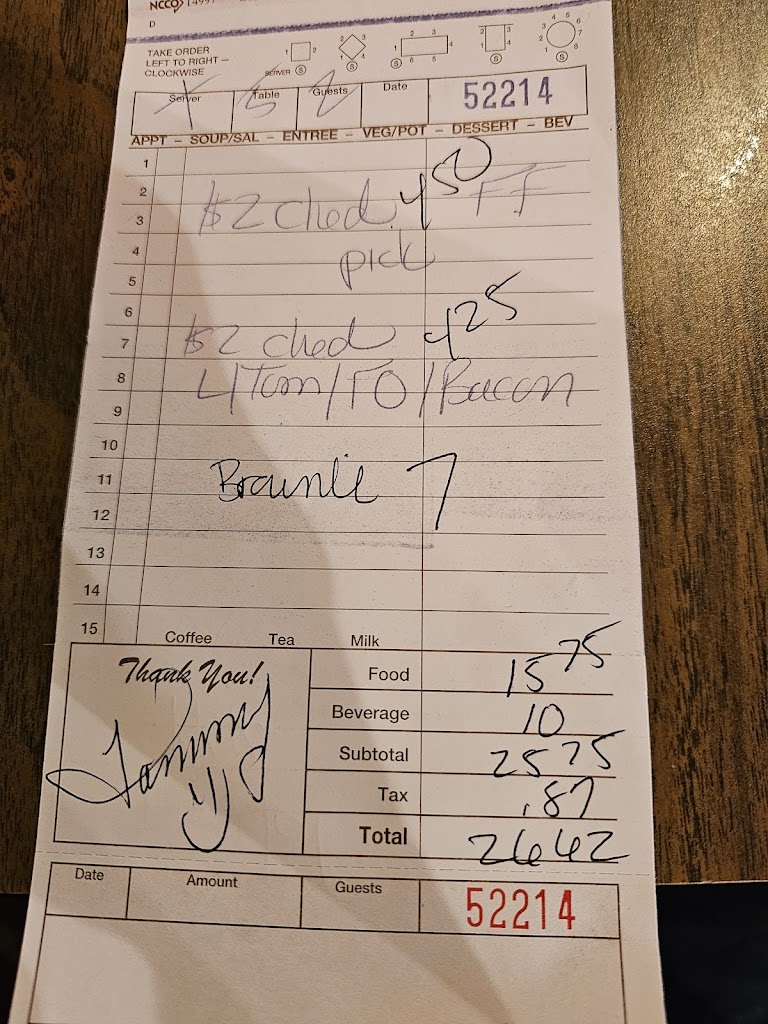 NCCO
D
TAKE ORDER
LEFT TO RIGHT –
CLOCKWISE
SERVER S
Server Table Guests Date 52214
5 2
APPT – SOUP/SAL – ENTREE – VEG/POT – DESSERT – BEV
1
2
3 $2 ched 4 50 FF
4 pick
5
6
7 $2 ched 4 25
8 L/Tom/FO/Bacon
9
10
11 Brownie 7
12
13
14
15
Coffee Tea Milk
Thank You!
Tammy
Food 15 75
Beverage 10
Subtotal 25 75
Tax .87
Total 26 62
Date Amount Guests 52214